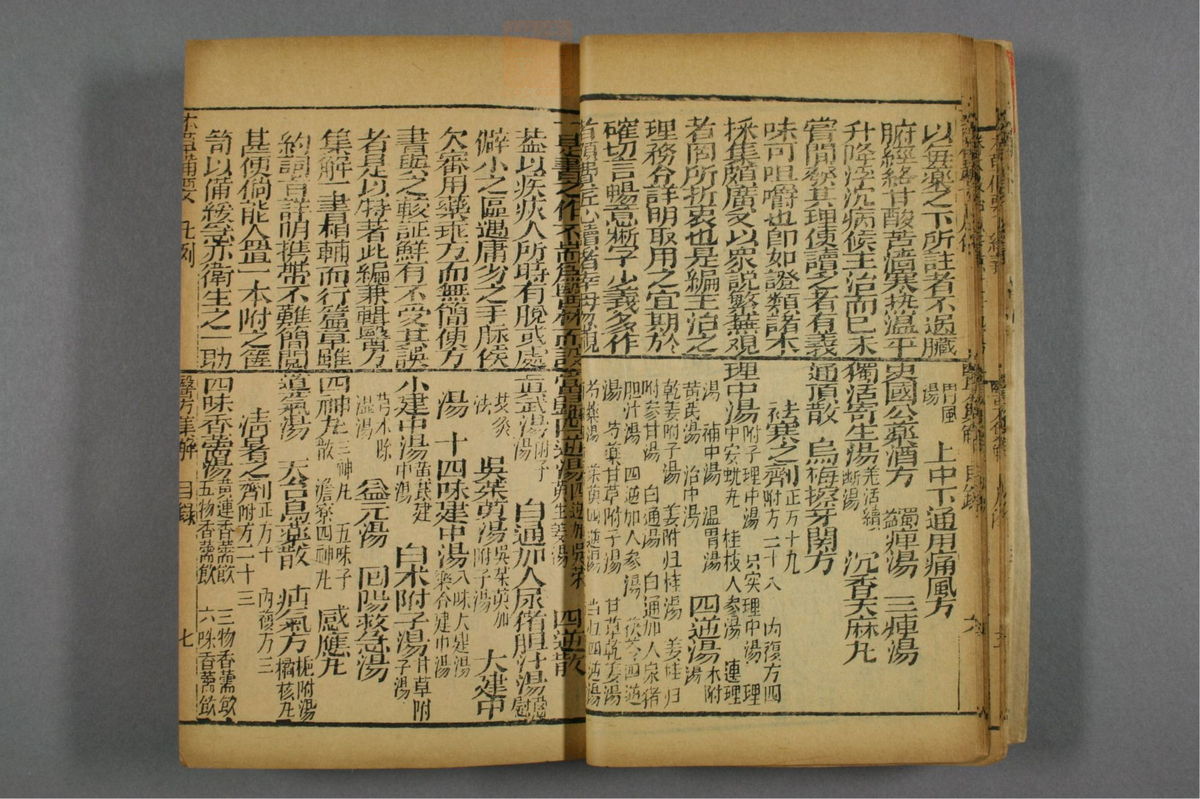 以每藥之下所註者不過臟
腑經絡甘酸苦澀寒熱溫平
升降浮沉病候主治而已未
嘗閒發其理使讀之者有義
味可咀嚼也即如證類諸本
採集頗廣又以衆說繁蕪觀
者罔所折衷也是編主治之
理務令詳明取用之宜期於
確切言暢意晰字少義多作
者頗費匠心讀者幸毋忽視
湯 鬥風 上中下通用痛風方
史國公藥酒方 蠲痺湯 三痺湯
獨活寄生湯 羌活續斷湯 沉香天麻丸
通頂散 烏梅擦牙関方
祛寒之劑 正方十九 附方二十八 內複方四
理中湯 附子理中湯 只实理中湯 理中安蚘丸 桂枝人参湯 連理
湯 補中湯 溫胃湯 四逆湯 木附湯
黃芪湯 治中湯
乾姜附子湯 姜附归桂湯 姜桂归
附参甘湯 白通湯 白通加人尿猪
胆汁湯 四逆加人参湯 茯苓四逆
湯 芍藥甘草附子湯 甘草乾姜湯
芍藥湯 茱萸四逆湯 当归四逆湯
一是書之作不耑為醫林而設
蓋以疾疢人所時有脫或處
僻小之區遇庸劣之手脉候
欠審用藥乖方而無簡便方
書與之較証鮮有不受其誤
者是以特著此編兼輯醫方
集解一書相輔而行篇章雖
約詞旨詳明携帶不難簡閱
甚便倘能人置一本附之篋
笥以備緩急亦衛生之一助
當歸四逆湯 四逆加吳茱萸生姜湯 四逆散
真武湯 附子湯 白通加人尿猪胆汁湯 葱熨
法 艾灸 吳茱萸湯 吳茱萸加附子湯 大建中
湯 十四味建中湯 八味大建湯 藥令建中湯
小建中湯 黃芪建中湯 白朮附子湯 甘草附子湯
溫湯 益元湯 回陽救急湯
四神丸 二三神丸 五味子散 澹寮四神丸 感應丸
導氣湯 天台烏藥散 疝氣方 梔附湯 橘核丸
清暑之劑 正方十 附方二十三 內複方三
四味香薷湯 黃連香薷飲 三物香薷飲 五物香薷飲 六味香薷飲
本草備要 凡例
醫方集解 目錄 七